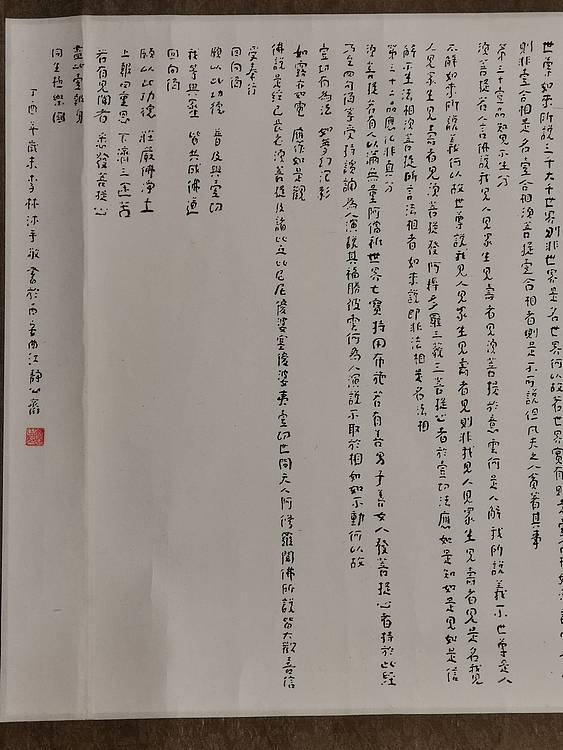 世尊如來所說三千大千世界則非世界是名世界何以故若世界實有則是一合相如來說
則非壹合相是名壹合相須菩提壹合相者則是不可說但凡夫之人貪著其事
第三十壹品知見不生分
須菩提若人言佛說我見人見眾生見壽者見須菩提於意云何是人解我所說義不世尊是人
不解如來所說義何以故世尊說我見人見眾生見壽者見則非我見人見眾生見壽者見是名我見
人見眾生見壽者見須菩提發阿耨多羅三藐三菩提心者於壹切法應如是知如是見如是信
解不生法相須菩提所言法相者如來說即非法相是名法相
第三十二品應化非真分
須菩提若有人以滿無量阿僧祇世界七寶持用布施若有善男子善女人發菩提心者持於此經
乃至四句偈等受持讀誦為人演說其福勝彼云何為人演說不取於相如如不動何以故
壹切有為法 如夢幻泡影
如露亦如電 應作如是觀
佛說是經已長老須菩提及諸比丘比丘尼優婆塞優婆夷壹切世間天人阿修羅聞佛所說皆大歡喜信
受奉行
回向偈
願以此功德 普及與壹切
我等與眾生 皆共成佛道
回向偈
願以此功德 莊嚴佛淨土
上報四重恩 下濟三塗苦
若有見聞者 悉發菩提心
盡此壹報身
同生極樂國
丁酉年歲末李林沐手敬書於西安曲江靜心齋